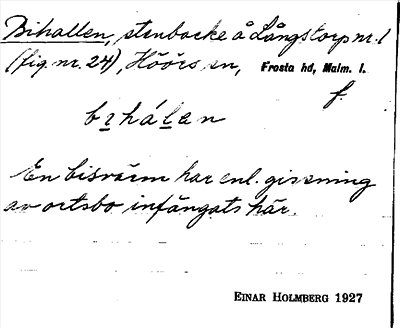 Bihallen, stenbacke å Långstorp nr. 1
(fig. nr. 24), Höörs sn, Frosta hd, Malm. l.
f.
bɪhálen
En bisvärm har enl. gissning
av ortsbo infångats här.
EINAR HOLMBERG 1927